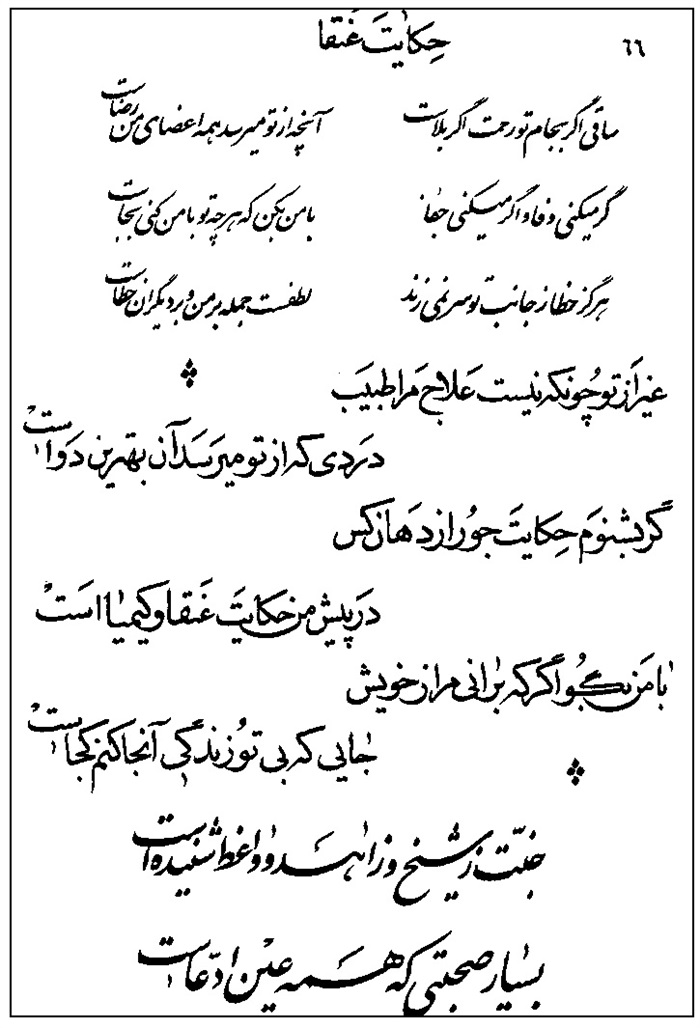 حکایت عنقا ٦٦
ساقی اگر بجام تو رحمت اگر بلاست آنچه از تو میرسد همه اعضای من رضاست
گر میکنی وفا و اگر میکنی جفا با من بکن که هر چه تو با من کنی بجاست
هرگز خطا ز جانب تو سر نمی زند لطفست جمله بر من و بر دیگران خطاست
غیر از تو چونکه نیست علاج مرا طبیب
دردی که از تو میرسد آن بهترین دواست
گر بشنوم حکایت جور از دهان کس
در پیش من حکایت عنقا و کیمیا است
با من بگو اگر که برانی مرا ز خویش
جایی که بی تو زندگی آنجا کنم کجاست
جنت ز شیخ و زاهد و واعظ شنیده است
بسیار صحبتی که همه عین ادعاست